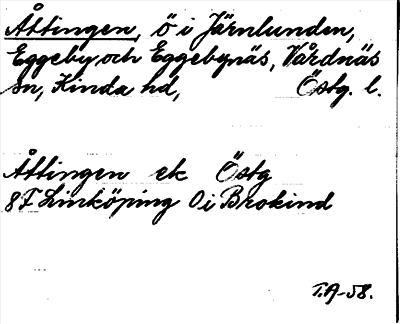 Åttingen, ö i Järnlunden,
Eggeby och Eggebynäs, Vårdnäs
sn, Kinda hd, Östg. l.
Åttingen ek Östg
8F Linköping 0 i Brokind
T.A-58.